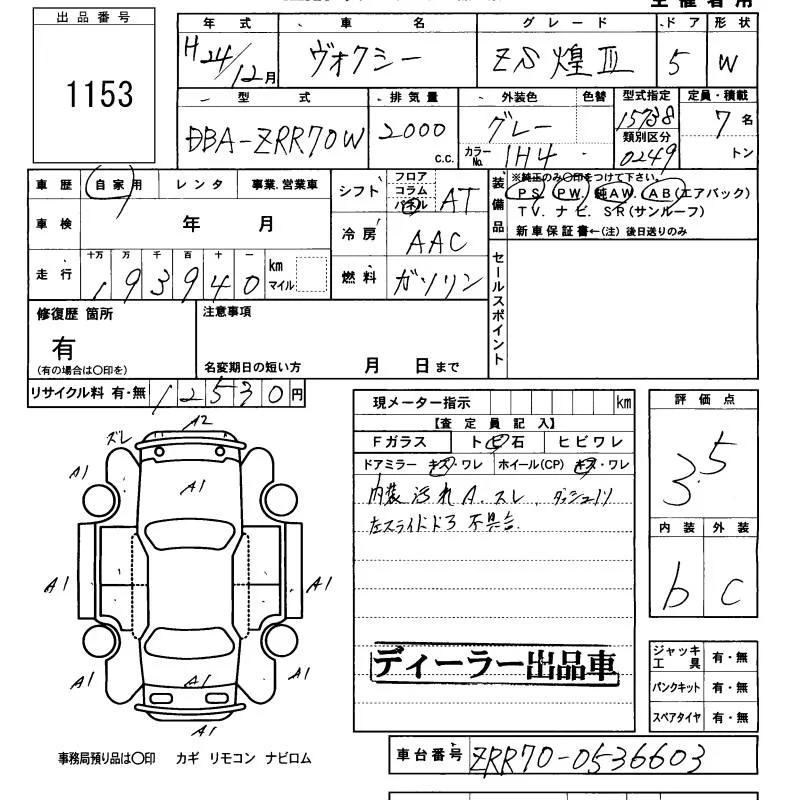 出品番号
1153
年式 車名 グレード ドア 形状
H24/12月 ヴォクシー ZS 煌Ⅲ 5 W
型式 排気量 外装色 色替 型式指定 定員・積載
DBA-ZRR70W 2000 c.c. グレー 15738 7名
カラーNo. 1H4 類別区分 0249 トン
車歴 自家用 レンタ 事業.営業車
車検 年 月
走行 十万 万 千 百 十 一 km マイル
193940
シフト フロア コラム パネル AT
冷房 AAC
燃料 ガソリン
装備品
※純正のみ〇印をつけて下さい。
PS. PW. 純AW. AB(エアバック)
TV. ナビ. SR(サンルーフ)
新車保証書←(注) 後日送りのみ
セールスポイント
修復歴 箇所
有
(有の場合は〇印を)
注意事項
名変期日の短い方 月 日まで
リサイクル料 有・無 12530円
現メーター指示 km
【査定員記入】
Fガラス ト ビ 石 ヒビワレ
ドアミラー キズ・ワレ ホイール(CP) キズ・ワレ
内装 汚れ A. スレ.
左スライドドア 不具合.
ディーラー出品車
評価点
3.5
内装 外装
b C
ジャッキ工具 有・無
パンクキット 有・無
スペアタイヤ 有・無
車台番号 ZRR70-0536603
A2
ズレ
A1
A1
A1
A1
A1
A1
A1
A1
事務局預り品は〇印 カギ リモコン ナビロム